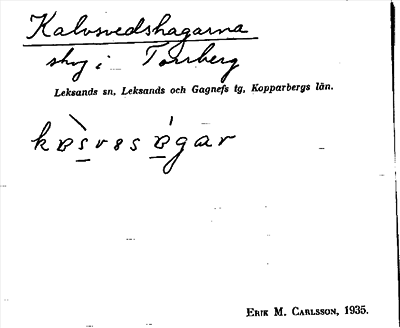 Kalvsvedshagarna
skog i Torrberg
Leksands sn, Leksands och Gagnefs tg, Kopparbergs län.
ERIK M. CARLSSON, 1935.